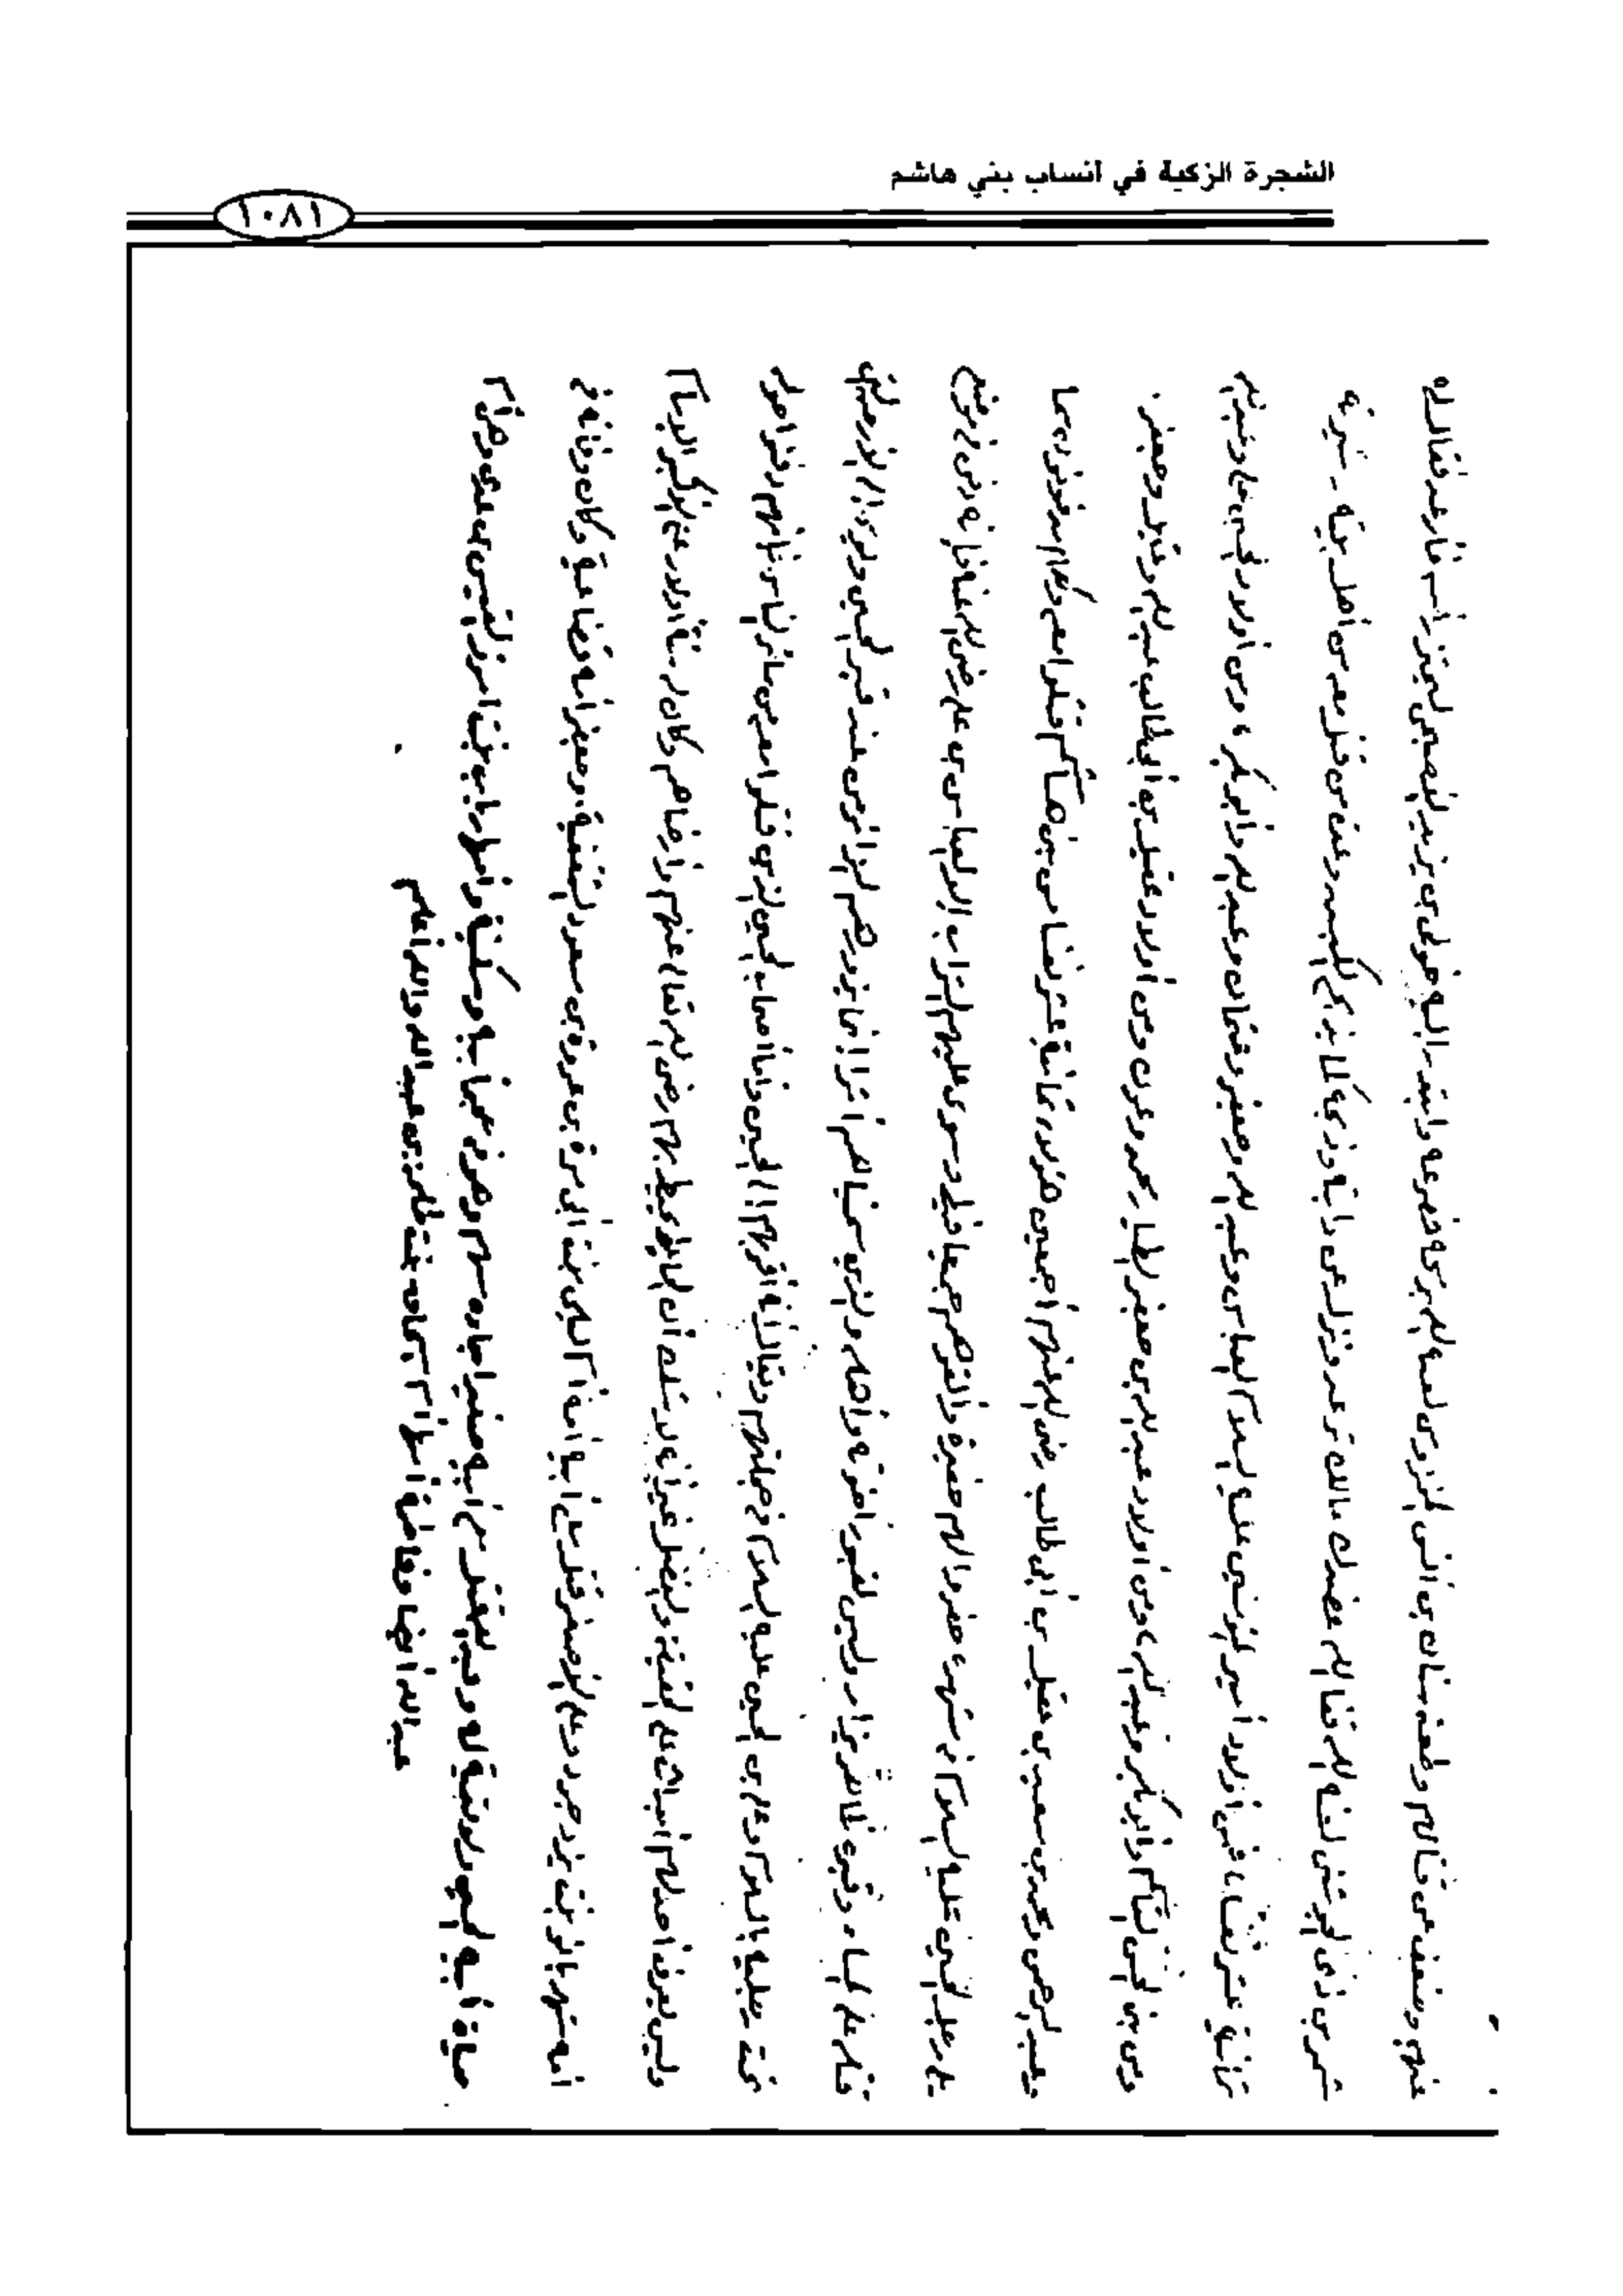 الشجرة الزكية في أنساب بني هاشم
١٠٨١
عنهم وضعف عن قتالهم وطعنه سنان بن أنس لعنه الله خاصرته وابتدر إليه خولي بن يزيد الأصبحي ليحتز رأسه فأرعد فقال له
شمر بن ذي الجوشن فقال الله عضدك مالك ترعد ونزل عن دابته وذبحه كما يذبح الكبش وعدة من قتل معه من أهل بيته وعشيرته
ثمانية عشر نفسا فمن أولاد أمير المؤمنين عليه السلام العباس وعبد الله وجعفر وعثمان وعبيد الله وأبو بكر ومن أولاد الحسين علي وعبد الله
ومن بني الحسن القاسم وأبو بكر وعبد الله ومن أولاد عبد الله بن جعفر الطيار محمد وعون ومن أولاد عقيل بن أبي طالب عبد الله وعقيل وجعفر
وعبد الرحمن ومحمد بن سعيد بن عقيل بن أبي طالب رضي الله عنهم أجمعين هؤلاء ثمانية عشر نفسا من بني هاشم قتلوا معه وكلهم مدفونون مما
يلي رجلي الحسين عليه السلام في مشهده حفر لهم حفيرة وألقوهم جميعا فيها وسوى عليهم التراب إلا العباس بن علي رضي الله عنه فإنه دفن في موضع
قتله على المسناة وقبره ظاهر يزار وليس لقبور إخوته وأهله الذين سميناهم أثر إنما يزورهم الزائر من عند قبر الحسين ويومئ إلى الأرض التي
نحو رجليه بالسلام وعلي بن الحسين عليه السلام في جملتهم ويقال إنه أقربهم إلى الحسين وأما أصحاب الحسين الذين قتلوا معه من سائر الناس فإنهم دفنوا حوله
وليس يعرف لهم أجداث على الحقيقة والتفصيل غير أنه لا شك أن الحائر محيط بهم رضي الله تعالى عنهم وأرضاهم وكان له ستة أولاد علي الأكبر الإمام
أمه شهربانو بنت يزدجرد وعلي الأصغر قتل مع أبيه أمه آمنة ليلى بنت أبي مرة بن عروة بن مسعود الثقفية وجعفر أمه قضاعية وكانت وفاته في
حياة أبيه الحسين ولا بقية له وعبد الله قتل مع أبيه صغيرا جاءه سهم وهو في حجر أبيه وسكينة وأمها رباب بنت امرئ القيس بن عدي وهي أم
عبد الله أيضا وفاطمة أمها أم إسحاق بنت طلحة بن عبيد الله والله أعلم